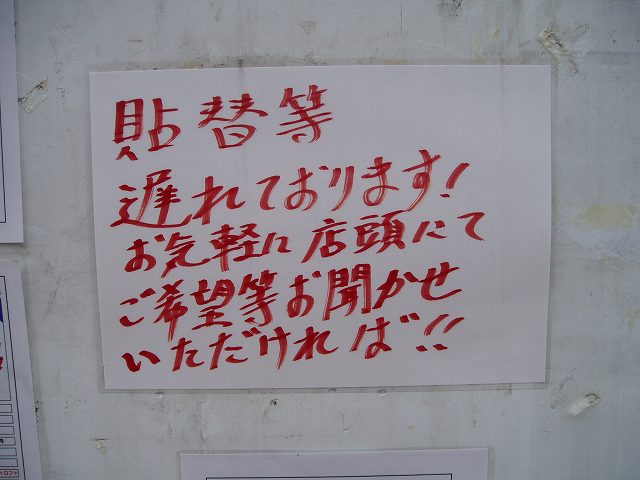 貼替等
遅れております!
お気軽に店頭にて
ご希望等お聞かせ
いただければ!!